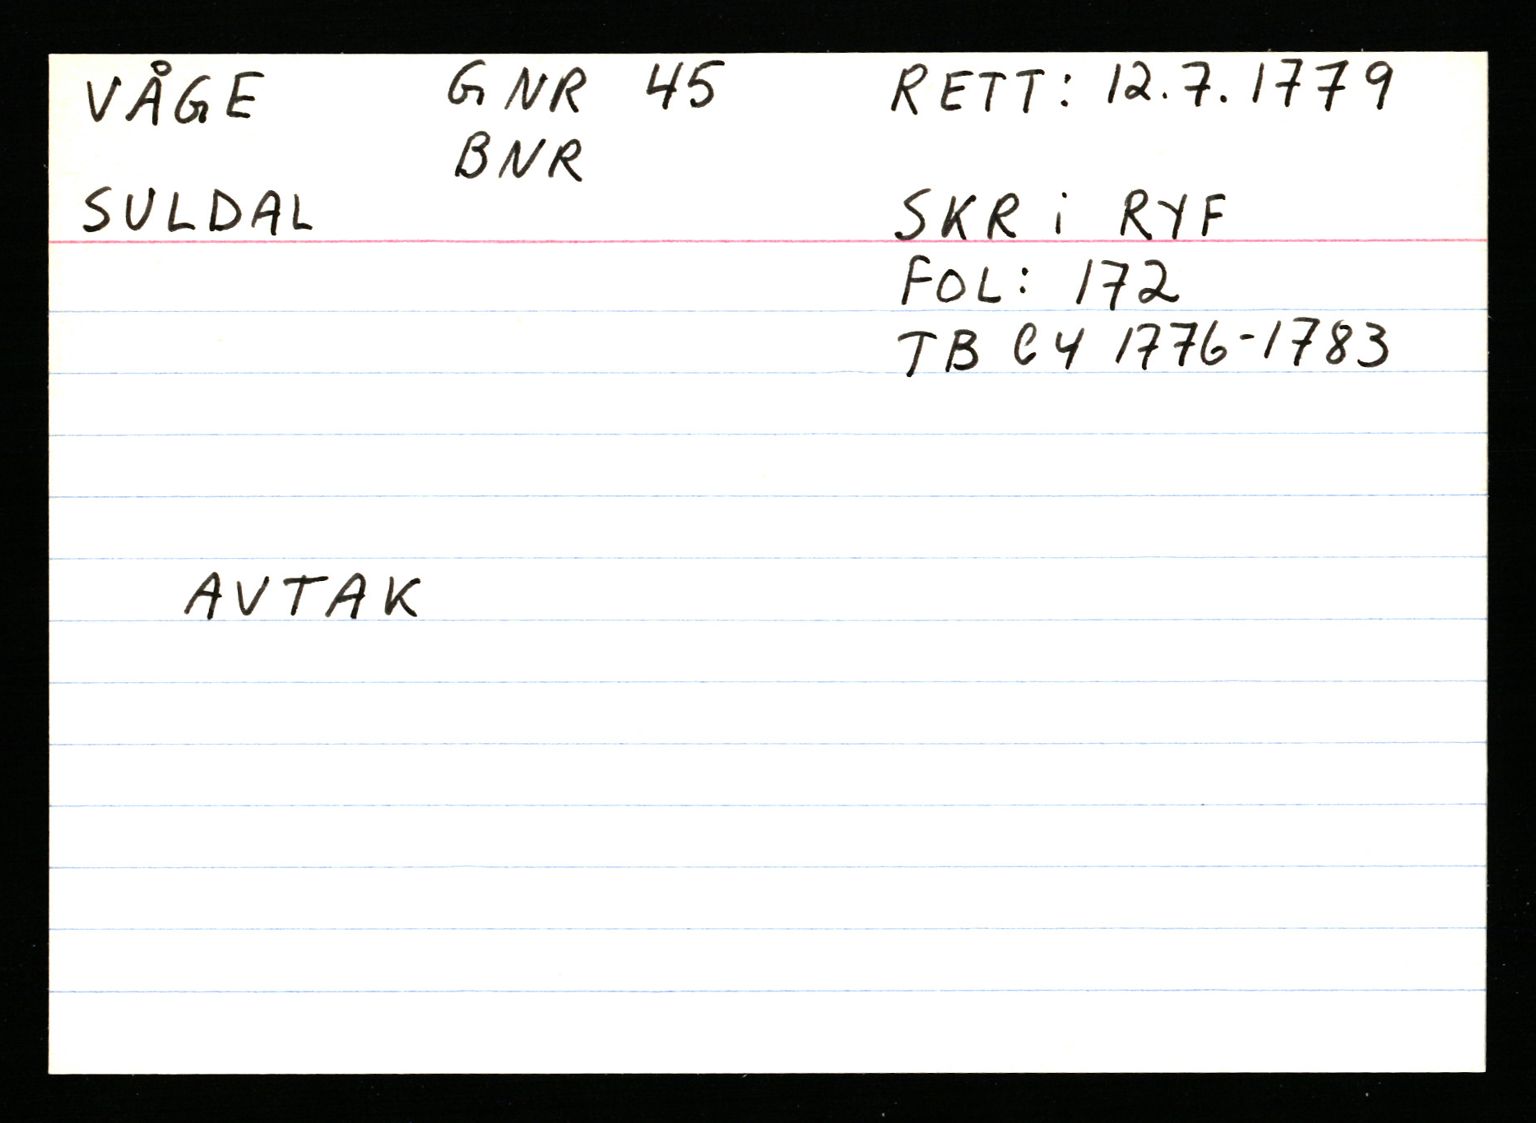 VÅGE GNR 45 RETT: 12.7.1779
BNR
SULDAL SKR i RYF
FOL: 172
TB C4 1776-1783
AVTAK